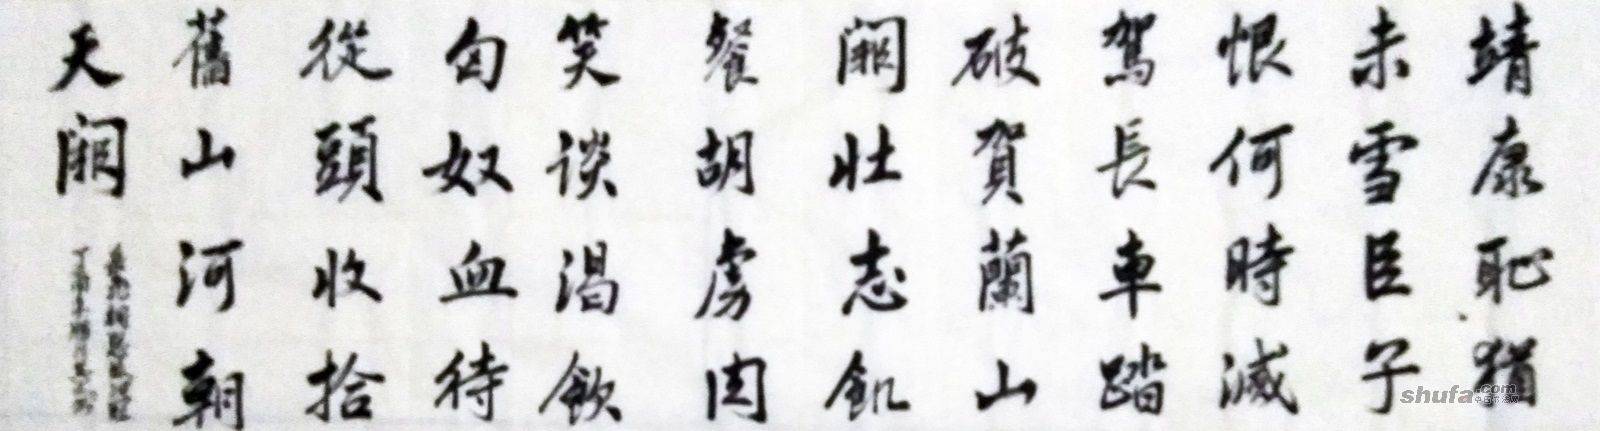 靖康恥猶
未雪臣子
恨何時滅
駕長車踏
破賀蘭山
闕壯志飢
餐胡虜肉
笑談渴飲
匈奴血待
從頭收拾
舊山河朝
天闕
shufa.com